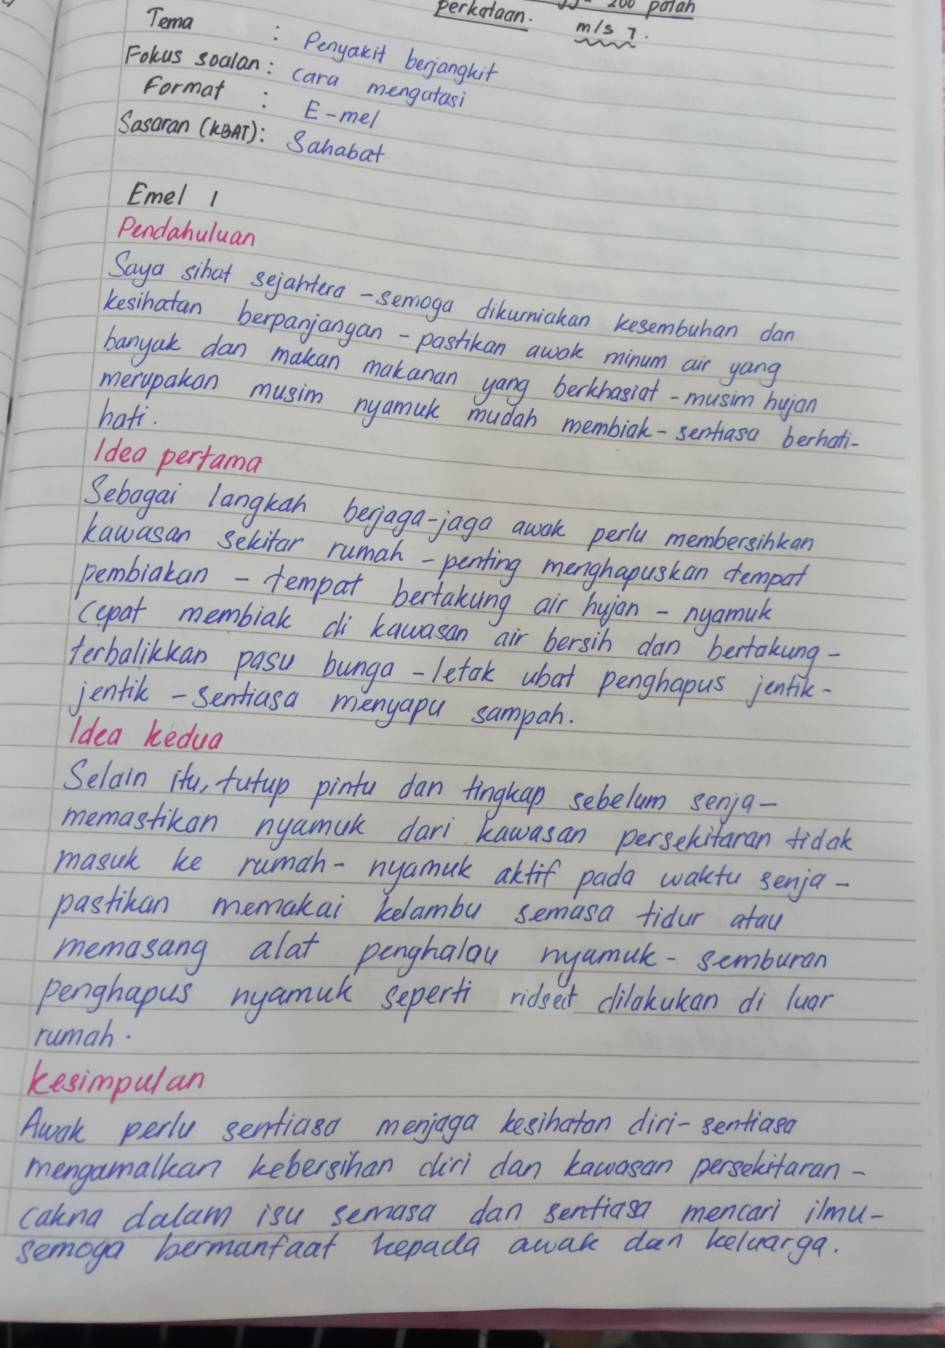 perkataan. 200 patah
m/s 7.
Tema : Penyakit berjangkit
Fokus soalan : cara mengatasi
Format : E-mel
Sasaran (KBAT) : Sahabat
Emel 1
Pendahuluan
Saya sihat sejahtera - semoga dikurniakan kesembuhan dan
kesihatan berpanjangan - pastikan awak minum air yang
banyak dan makan makanan yang berkhasiat - musim hujan
merupakan musim nyamuk mudah membiak - sentiasa berhati-
hati.
Idea pertama
Sebagai langkah berjaga-jaga awak perlu membersihkan
kawasan sekitar rumah - penting menghapuskan tempat
pembiakan - tempat bertakung air hujan - nyamuk
cepat membiak di kawasan air bersih dan bertakung -
terbalikkan pasu bunga - letak ubat penghapus jentik-
jentik - sentiasa menyapu sampah.
Idea kedua
Selain itu, tutup pintu dan tingkap sebelum senja -
memastikan nyamuk dari kawasan persekitaran tidak
masuk ke rumah - nyamuk aktif pada waktu senja -
pastikan memakai kelambu semasa tidur atau
memasang alat penghalau nyamuk - semburan
penghapus nyamuk seperti ridsect dilakukan di luar
rumah.
Kesimpulan
Awak perlu sentiasa menjaga kesihatan diri - sentiasa
mengamalkan kebersihan diri dan kawasan persekitaran -
cakna dalam isu semasa dan sentiasa mencari ilmu -
semoga bermanfaat kepada awak dan keluarga.